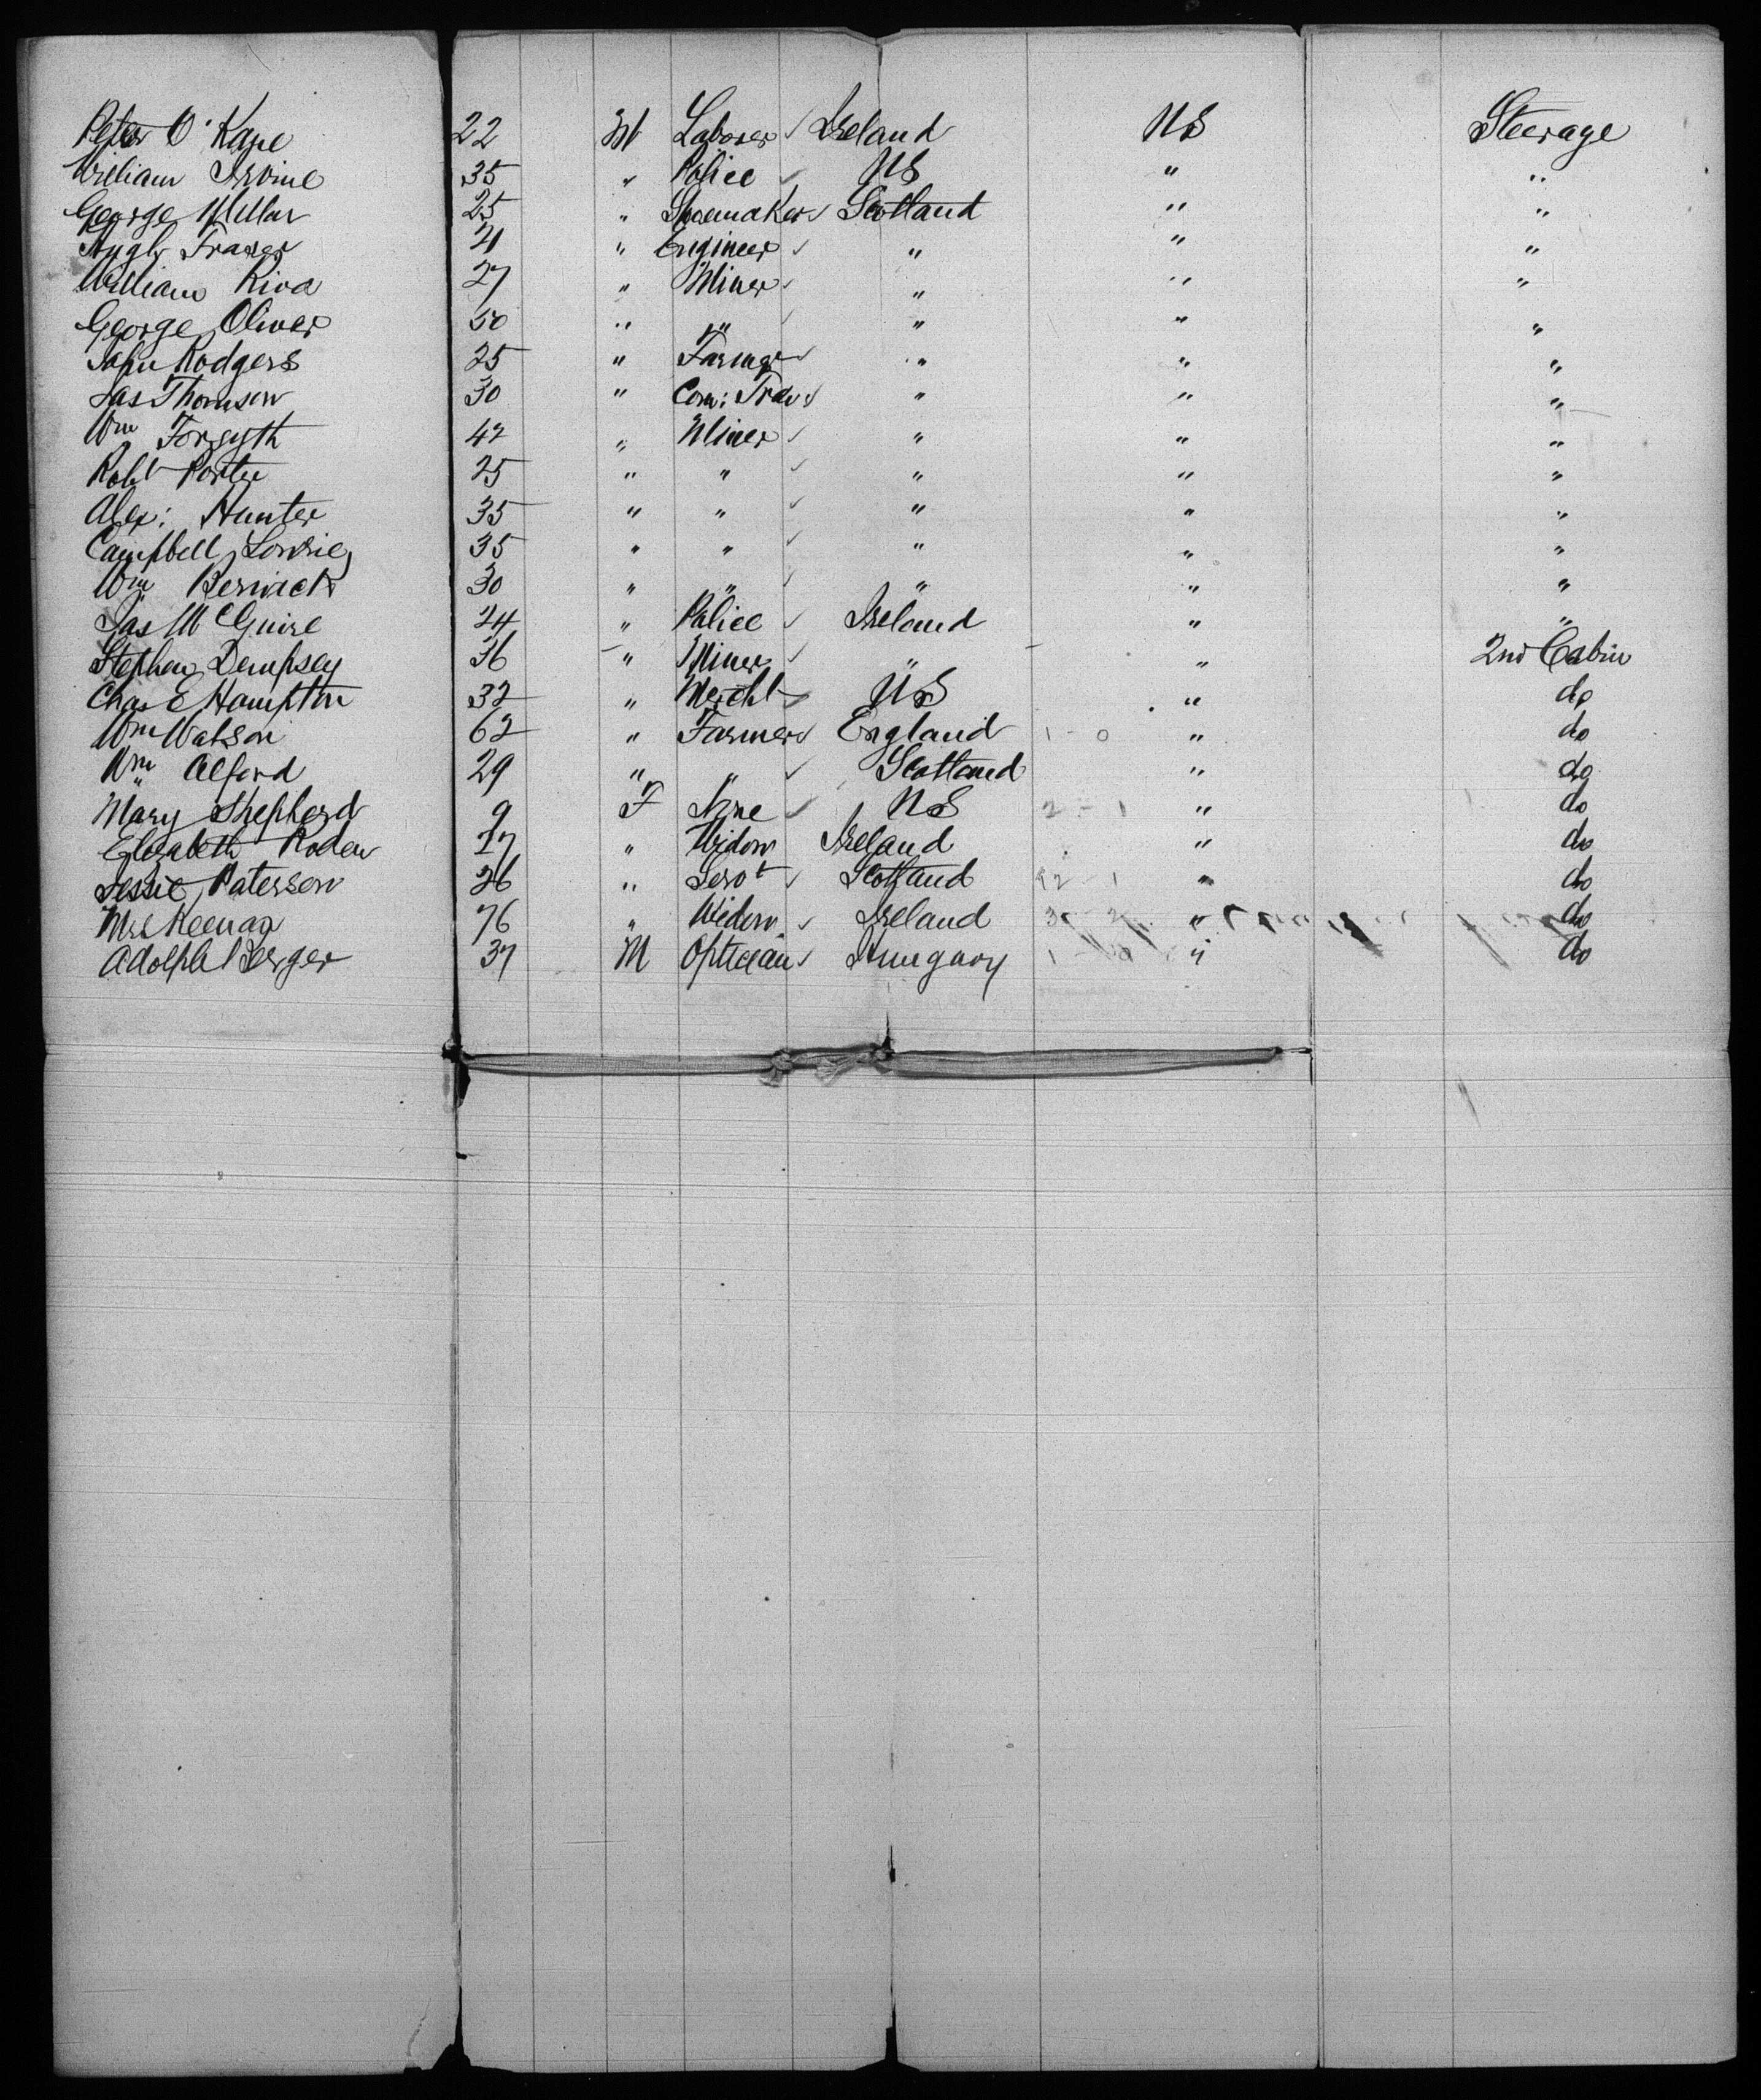 Peter O'Kane 22 M Laborer Ireland US Steerage
William Irvine 35 " Police US " "
George Millar 25 " Shoemaker Scotland " "
Hugh Fraser 21 " Engineer " " "
William 27 " Miner " " "
George Oliver 50 " " " " "
John Rodgers 25 " Farmer " " "
Jas Thomson 30 " Com: Trav " " "
Wm Forsyth 42 " Miner " " "
Robt Porter 25 " " " " "
Alex: Hunter 35 " " " " "
Campbell Lowrie 35 " " " " "
Wm Berwick 30 " " " " "
Jas McGuire 24 " Police Ireland " "
Stephen Dempsey 36 " Miner " " 2nd Cabin
Chas E Hampton 32 " Mercht US " do
Wm Watson 62 " Farmer England 1-0 " do
Wm Alford 29 " " Scotland " do
Mary Shepherd 9 F None US 2-1 " do
Elizabeth Roden 27 " Widow Ireland " do
Jessie Paterson 26 " Servt Scotland 2-1 " do
Mrs Keenan 76 " Widow Ireland 3-2 " do
Adolph Berger 37 M Optician Hungary " do